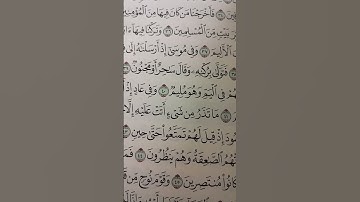 فَأَخْرَجْنَا مَن كَانَ فِيهَا مِنَ ٱلْمُؤْمِنِينَ
بَيْتٍ مِّنَ ٱلْمُسْلِمِينَ ٣٦ وَتَرَكْنَا فِيهَآ
ٱلْأَلِيمَ ٣٧ وَفِى مُوسَىٰٓ إِذْ أَرْسَلْنَٰهُ إِلَىٰ
فَتَوَلَّىٰ بِرُكْنِهِۦ وَقَالَ سَٰحِرٌ أَوْ مَجْنُونٌ ٣٩
هُمْ فِى ٱلْيَمِّ وَهُوَ مُلِيمٌ ٤٠ وَفِى عَادٍ إِذْ
٤١ مَا تَذَرُ مِن شَىْءٍ أَتَتْ عَلَيْهِ إِلَّا
مُودَ إِذْ قِيلَ لَهُمْ تَمَتَّعُوا۟ حَتَّىٰ حِينٍ
تْهُمُ ٱلصَّٰعِقَةُ وَهُمْ يَنظُرُونَ ٤٤ فَمَا
كَانُوا۟ مُنتَصِرِينَ ٤٥ وَقَوْمَ نُوحٍ مِّن